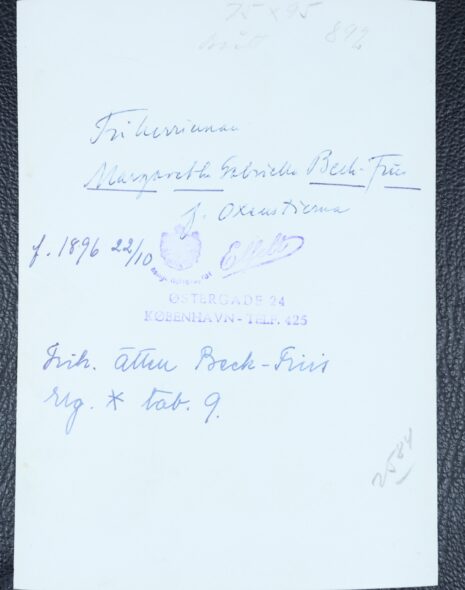 75 x 95
892
Friherrinnan
Margaretha Gabriella Beck-Friis
f. Oxenstierna
f. 1896 22/10
Elfelt
ØSTERGADE 24
KØBENHAVN - TELF. 425
Frih. ätten Beck-Friis
* tab. 9.
2584